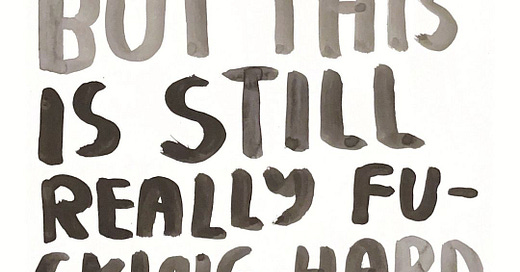 BUT THIS
IS STILL
REALLY FU-
CKING HARD